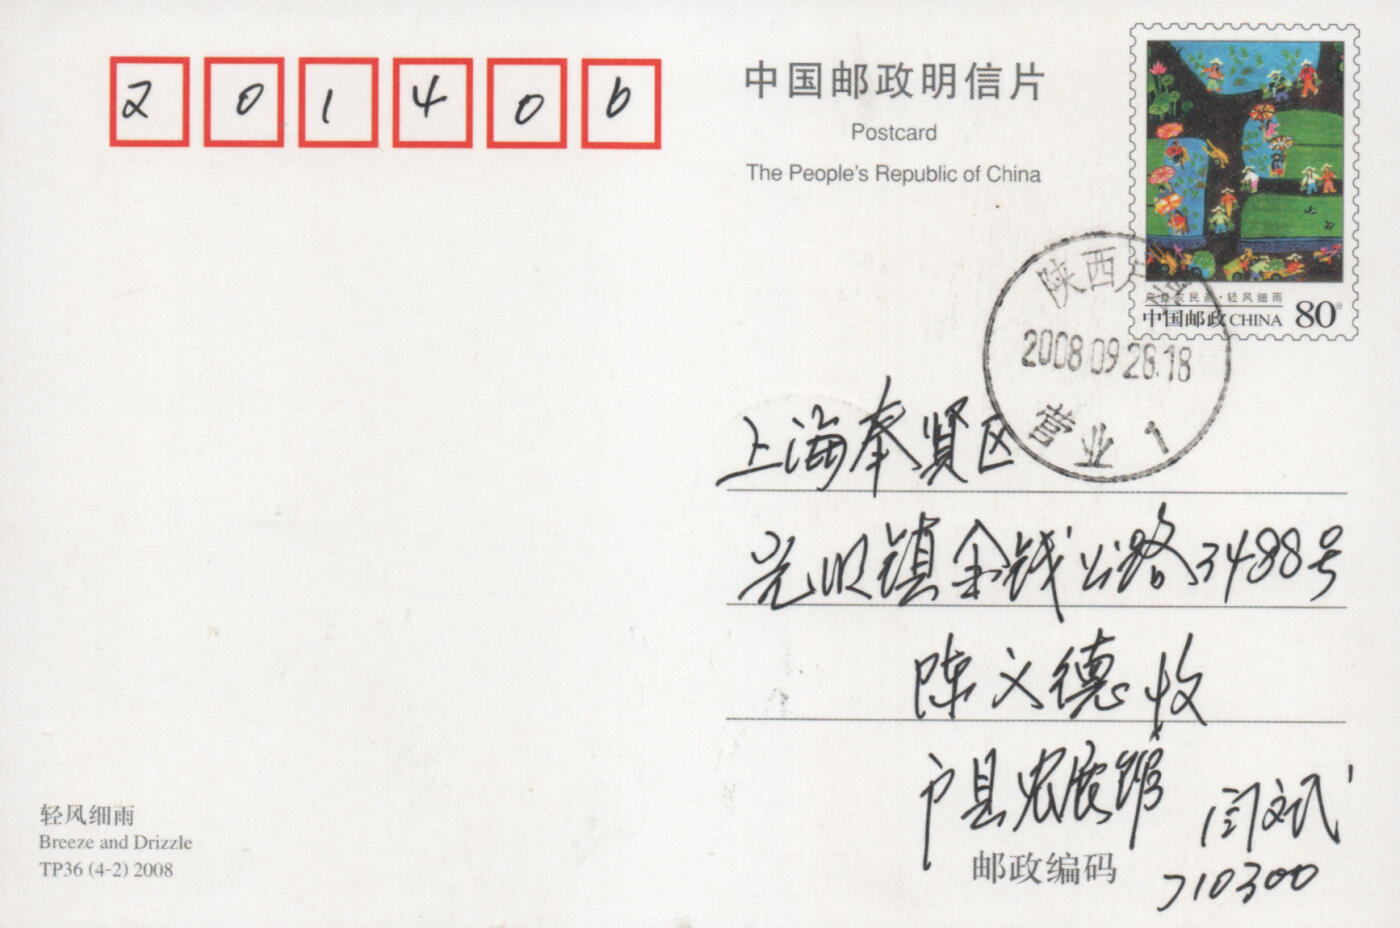 201406
中国邮政明信片
Postcard
The People's Republic of China
户县农民画·轻风细雨
中国邮政 CHINA 80分
陕西户县
2008.09.28.18
营业 1
上海奉贤区
光明镇金钱公路3488号
陈义德收
户县农展馆 闫文斌
邮政编码 710300
轻风细雨
Breeze and Drizzle
TP36 (4-2) 2008